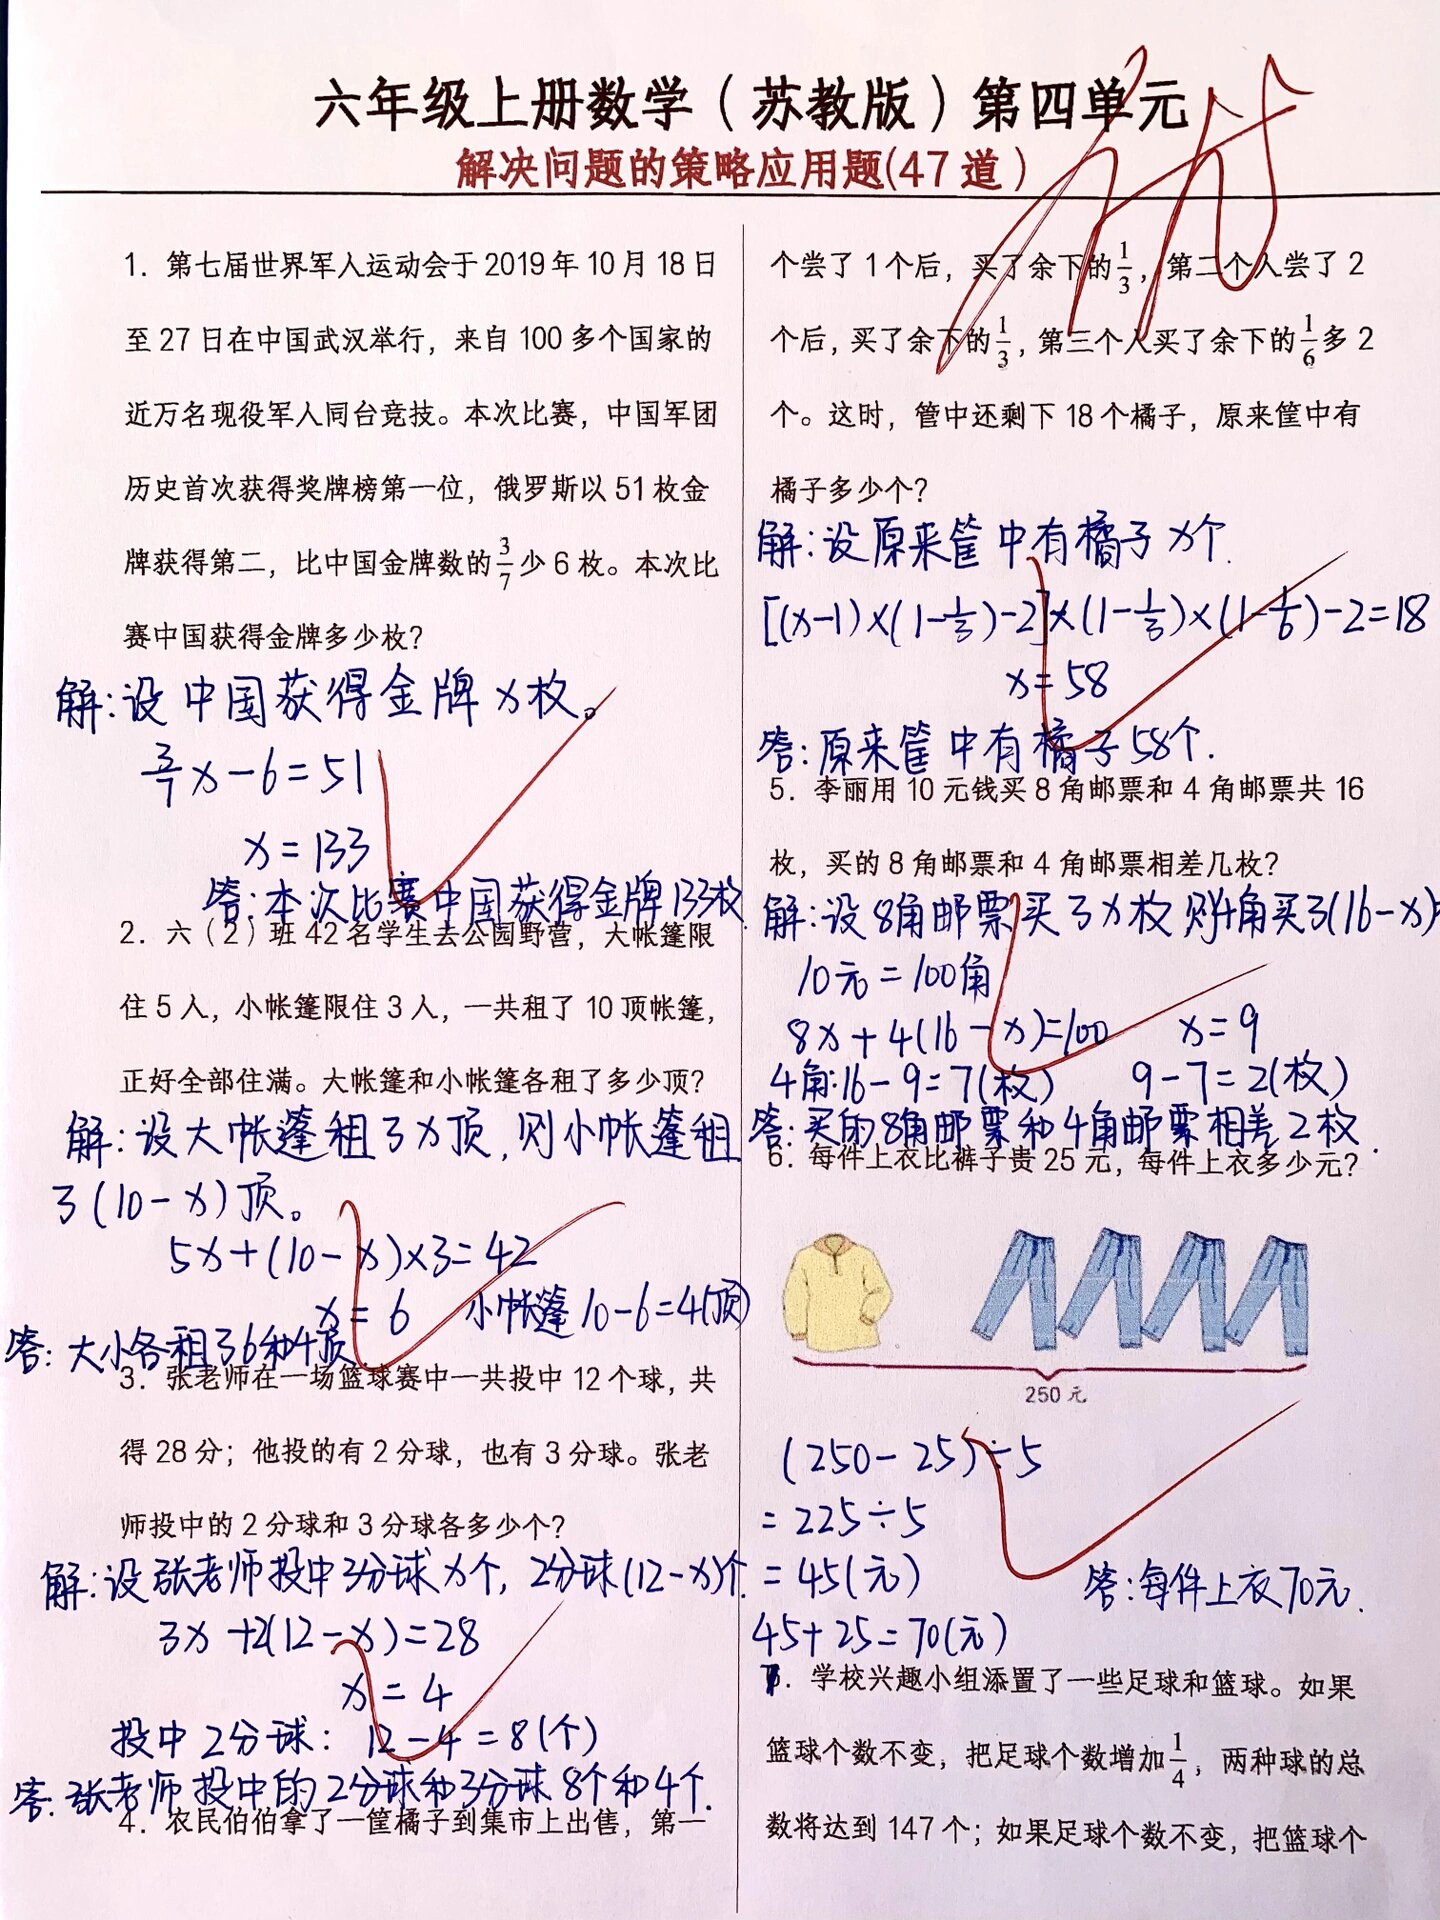 六年级上册数学（苏教版）第四单元
解决问题的策略应用题(47道)
1. 第七届世界军人运动会于2019年10月18日
至27日在中国武汉举行，来自100多个国家的
近万名现役军人同台竞技。本次比赛，中国军团
历史首次获得奖牌榜第一位，俄罗斯以51枚金
牌获得第二，比中国金牌数的3/7少6枚。本次比
赛中国获得金牌多少枚？
解:设中国获得金牌x枚。
3/7x-6=51
x=133
答:本次比赛中国获得金牌133枚
2. 六（2）班42名学生去公园野营，大帐篷限
住5人，小帐篷限住3人，一共租了10顶帐篷，
正好全部住满。大帐篷和小帐篷各租了多少顶？
解:设大帐篷租了x顶,则小帐篷租
了(10-x)顶。
5x+(10-x)×3=42
x=6 小帐篷10-6=4(顶)
答:大小各租了6和4顶
3. 张老师在一场篮球赛中一共投中12个球，共
得28分；他投的有2分球，也有3分球。张老
师投中的2分球和3分球各多少个？
解:设张老师投中3分球x个,2分球(12-x)个.
3x+2(12-x)=28
x=4
投中2分球: 12-4=8(个)
答:张老师投中的2分球和3分球8个和4个.
4. 农民伯伯拿了一筐橘子到集市上出售，第一
个尝了1个后，买了余下的1/3，第二个人尝了2
个后，买了余下的1/3，第三个人买了余下的1/6多2
个。这时，管中还剩下18个橘子，原来筐中有
橘子多少个？
解:设原来筐中有橘子x个.
[(x-1)×(1-1/3)-2]×(1-1/3)×(1-1/6)-2=18
x=58
答:原来筐中有橘子58个.
5. 李丽用10元钱买8角邮票和4角邮票共16
枚，买的8角邮票和4角邮票相差几枚？
解:设8角邮票买了x枚 则4角买了(16-x)
10元=100角
8x+4(16-x)=100 x=9
4角:16-9=7(枚) 9-7=2(枚)
答:买的8角邮票和4角邮票相差2枚.
6. 每件上衣比裤子贵25元，每件上衣多少元？
250元
(250-25)÷5
=225÷5
=45(元)
45+25=70(元)
答:每件上衣70元.
7. 学校兴趣小组添置了一些足球和篮球。如果
篮球个数不变，把足球个数增加1/4，两种球的总
数将达到147个；如果足球个数不变，把篮球个